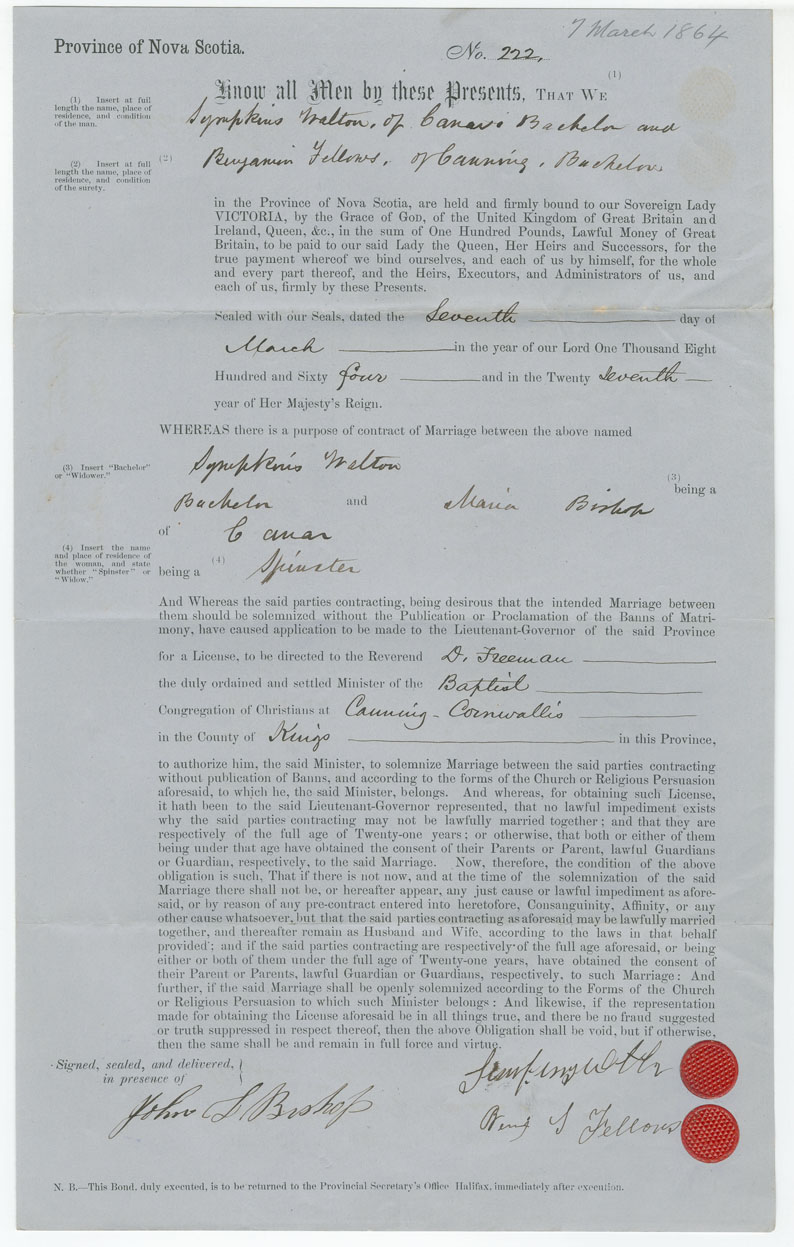 7 March 1864
Province of Nova Scotia.
No. 222,
(1)
Know all Men by these Presents, THAT WE
(1) Insert at full
length the name, place of
residence, and condition
of the man.
Sympkins Walton, of Canar. Bachelor and
(2) Insert at full
length the name, place of
residence, and condition
of the surety.
(2)
Benjamin Fellows, of Canning, Bachelor,
in the Province of Nova Scotia, are held and firmly bound to our Sovereign Lady
VICTORIA, by the Grace of GOD, of the United Kingdom of Great Britain and
Ireland, Queen, &c., in the sum of One Hundred Pounds, Lawful Money of Great
Britain, to be paid to our said Lady the Queen, Her Heirs and Successors, for the
true payment whereof we bind ourselves, and each of us by himself, for the whole
and every part thereof, and the Heirs, Executors, and Administrators of us, and
each of us, firmly by these Presents.
Sealed with our Seals, dated the Seventh day of
March in the year of our Lord One Thousand Eight
Hundred and Sixty four and in the Twenty Seventh
year of Her Majesty's Reign.
WHEREAS there is a purpose of contract of Marriage between the above named
(3) Insert "Bachelor"
or "Widower."
Sympkins Walton
(3)
being a
Bachelor and Maria Bishop
of Canar
(4) Insert the name
and place of residence of
the woman, and state
whether "Spinster" or
"Widow."
(4)
being a Spinster
And Whereas the said parties contracting, being desirous that the intended Marriage between
them should be solemnized without the Publication or Proclamation of the Banns of Matri-
mony, have caused application to be made to the Lieutenant-Governor of the said Province
for a License, to be directed to the Reverend D. Freeman
the duly ordained and settled Minister of the Baptist
Congregation of Christians at Canning - Cornwallis
in the County of Kings in this Province,
to authorize him, the said Minister, to solemnize Marriage between the said parties contracting
without publication of Banns, and according to the forms of the Church or Religious Persuasion
aforesaid, to which he, the said Minister, belongs. And whereas, for obtaining such License,
it hath been to the said Lieutenant-Governor represented, that no lawful impediment exists
why the said parties contracting may not be lawfully married together; and that they are
respectively of the full age of Twenty-one years; or otherwise, that both or either of them
being under that age have obtained the consent of their Parents or Parent, lawful Guardians
or Guardian, respectively, to the said Marriage. Now, therefore, the condition of the above
obligation is such, That if there is not now, and at the time of the solemnization of the said
Marriage there shall not be, or hereafter appear, any just cause or lawful impediment as afore-
said, or by reason of any pre-contract entered into heretofore, Consanguinity, Affinity, or any
other cause whatsoever, but that the said parties contracting as aforesaid may be lawfully married
together, and thereafter remain as Husband and Wife, according to the laws in that behalf
provided; and if the said parties contracting are respectively of the full age aforesaid, or being
either or both of them under the full age of Twenty-one years, have obtained the consent of
their Parent or Parents, lawful Guardian or Guardians, respectively, to such Marriage: And
further, if the said Marriage shall be openly solemnized according to the Forms of the Church
or Religious Persuasion to which such Minister belongs: And likewise, if the representation
made for obtaining the License aforesaid be in all things true, and there be no fraud suggested
or truth suppressed in respect thereof, then the above Obligation shall be void, but if otherwise,
then the same shall be and remain in full force and virtue.
Signed, sealed, and delivered,
in presence of
John S Bishop
Benj S Fellows
N. B.—This Bond, duly executed, is to be returned to the Provincial Secretary's Office Halifax, immediately after execution.